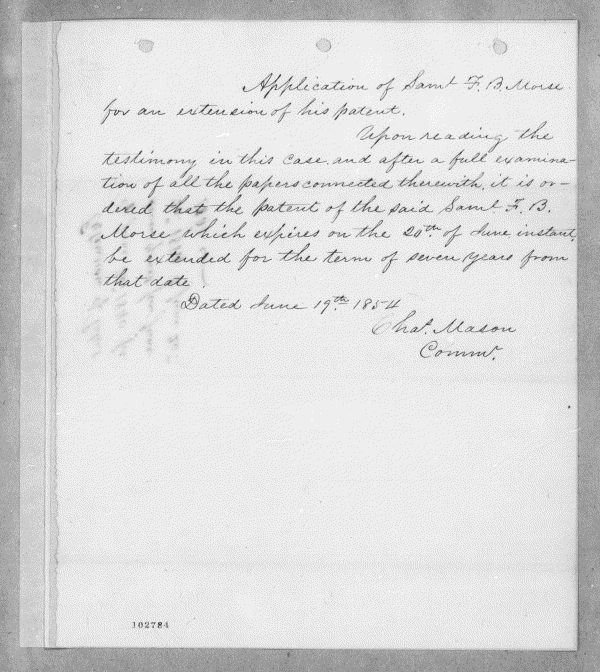 Application of Saml F. B. Morse
for an extension of his patent.
Upon reading the
testimony in this case, and after a full examina-
tion of all the papers connected therewith, it is or-
dered that the patent of the said Saml. F. B.
Morse which expires on the 20th. of June instant,
be extended for the term of seven years from
that date.
Dated June 19th. 1854
Chas. Mason
Commr.
102784